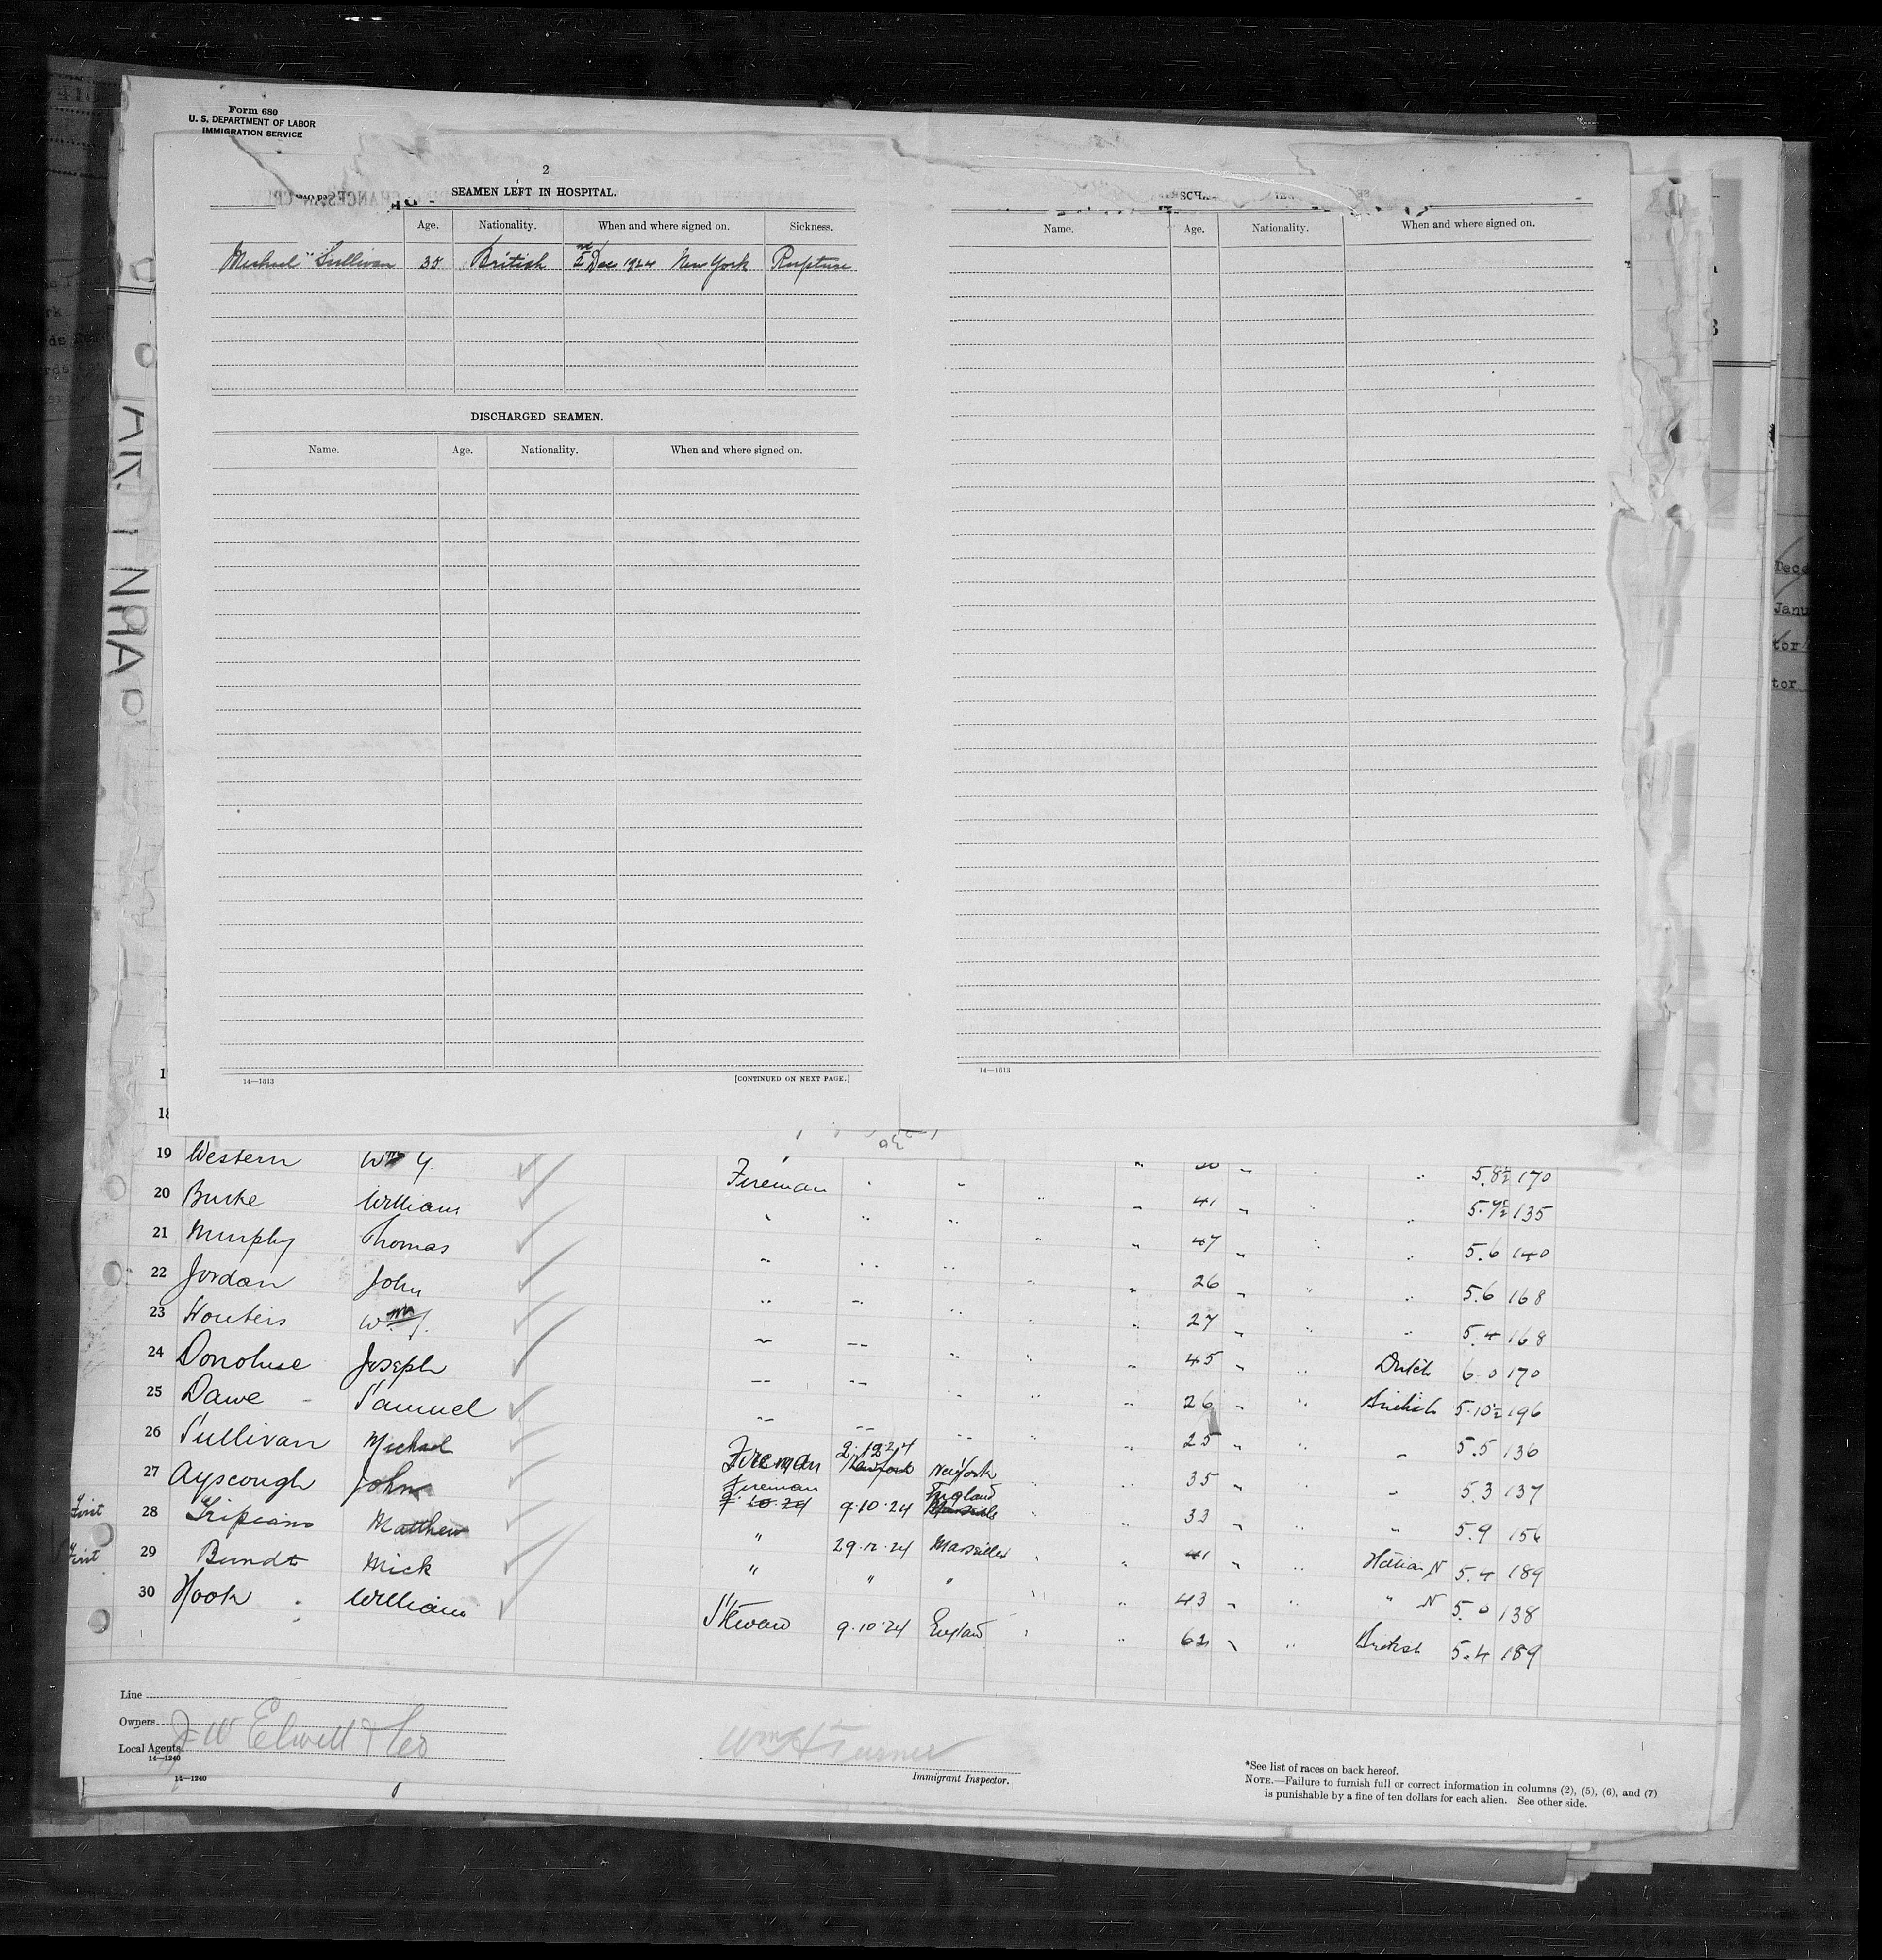 Form 680
U. S. DEPARTMENT OF LABOR
IMMIGRATION SERVICE
2
SEAMEN LEFT IN HOSPITAL.
Age. Nationality. When and where signed on. Sickness.
Michael Sullivan 35 British 2nd Dec 1924 New York Rupture
DISCHARGED SEAMEN.
Name. Age. Nationality. When and where signed on.
14—1613 [CONTINUED ON NEXT PAGE.]
Name. Age. Nationality. When and where signed on.
14—1613
19 Western Wm Fireman " " 5.8½ 170
20 Burke William " " " 41 " " " 135
21 Murphy Thomas " " " 47 " " " 5.6 140
22 Jordan John " " " 26 " " " 5.6 168
23 Wouters Wm J. " " " 27 " " " 5.4 168
24 Donohue Joseph " " " 45 " " Dutch 6.0 170
25 Dawe Samuel " " " 26 " " British 5.10½ 196
26 Sullivan Michael Fireman 2.12.24 New York 25 " " " 5.5 136
27 Ayscough John Fireman 9.10.24 England 35 " " " 5.3 137
First 28 Matthew " 29.12.24 Marseilles 33 " " " 5.9 156
First 29 Bundt Mick " " " 41 " " Italian N 5.4 189
30 Hook William Steward 9.10.24 England 43 " " " N 5.0 138
62 " " British 5.4 189
Line
Owners
Local Agents J W Elwell & Co
14—1240
14—1240
Wm H Turner
Immigrant Inspector.
*See list of races on back hereof.
NOTE.—Failure to furnish full or correct information in columns (2), (5), (6), and (7)
is punishable by a fine of ten dollars for each alien. See other side.